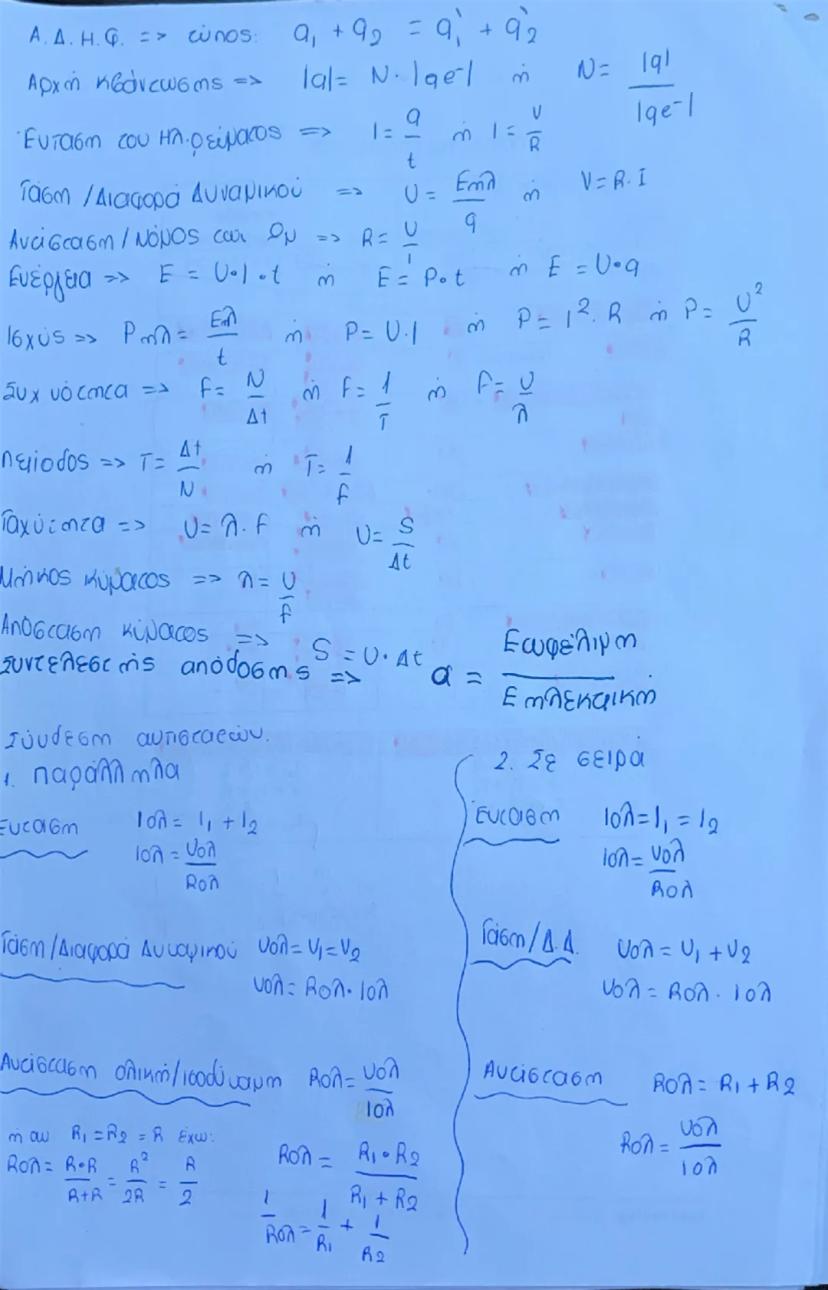 Α.Δ.Η.Φ. => τύπος: q₁ + q₂ = q₁' + q₂'
Αρχή κβάντωσης => |q| = N · |qe-| ή N = |q| / |qe-|
Ένταση του ηλ. ρεύματος => I = q / t ή I = V / R
Τάση / Διαφορά Δυναμικού => V = Eηλ / q ή V = R · I
Αντίσταση / Νόμος του Ωμ => R = V / I
Ενέργεια => E = V · I · t ή E = P · t ή E = V · q
Ισχύς => Pηλ = Eηλ / t ή P = V · I ή P = I² · R ή P = V² / R
Συχνότητα => f = N / Δt ή f = 1 / T ή f = υ / λ
Περίοδος => T = Δt / N ή T = 1 / f
Ταχύτητα => υ = λ · f ή υ = S / Δt
Μήκος κύματος => λ = υ / f
Απόσταση κύματος => S = υ · Δt
Συντελεστής απόδοσης => α = Εωφέλιμη / Εηλεκτρική
Σύνδεση αντιστατών.
1. Παράλληλα
Ένταση Iολ = I₁ + I₂
Iολ = Vολ / Rολ
Τάση / Διαφορά Δυναμικού Vολ = V₁ = V₂
Vολ = Rολ · Iολ
Αντίσταση ολική / ισοδύναμη Rολ = Vολ / Iολ
ή αν R₁ = R₂ = R έχω:
Rολ = R·R / R+R = R² / 2R = R / 2
Rολ = R₁ · R₂ / R₁ + R₂
1 / Rολ = 1 / R₁ + 1 / R₂
2. Σε σειρά
Ένταση Iολ = I₁ = I₂
Iολ = Vολ / Rολ
Τάση / Δ.Δ. Vολ = V₁ + V₂
Vολ = Rολ · Iολ
Αντίσταση Rολ = R₁ + R₂
Rολ = Vολ / Iολ